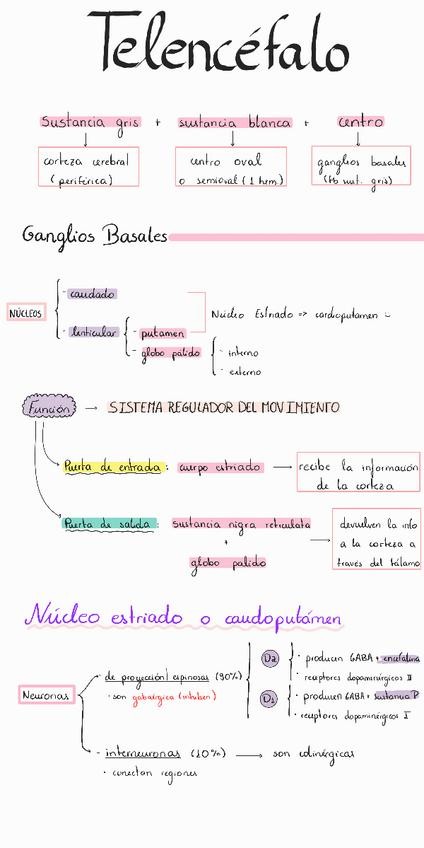 Telencéfalo
Sustancia gris + sustancia blanca + centro
corteza cerebral
(periférica)
centro oval
o semioval (1 hem)
ganglios basales
(tb sust. gris)
Ganglios Basales
NÚCLEOS
- caudado
- lenticular
- putamen
- globo pálido
Núcleo Estriado => caudoputamen
- interno
- externo
Función → SISTEMA REGULADOR DEL MOVIMIENTO
Puerta de entrada: cuerpo estriado → recibe la información
de la corteza
Puerta de salida: sustancia nigra reticulata
+
globo pálido
devuelven la info
a la corteza a
través del tálamo
Núcleo estriado o caudoputámen
Neuronas
- de proyección/espinosas (90%)
· son gabaérgica (inhiben)
D2
· producen GABA + encefalina
· receptores dopaminérgicos II
D1
· producen GABA + sustancia P
· receptores dopaminérgicos I
- interneuronas (10%) → son colinérgicas
· conectan regiones